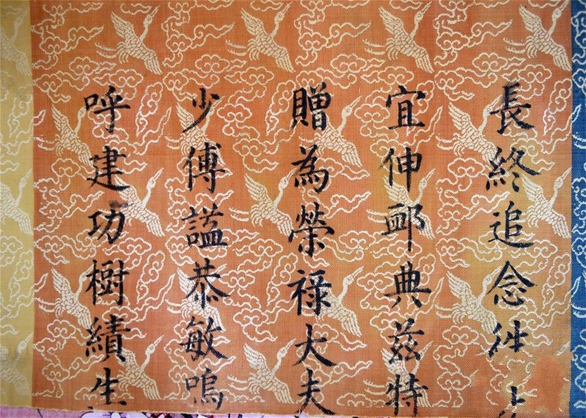 長終追念徃
宜伸䘏典茲特
贈為榮祿大夫
少傅謚恭敏嗚
呼建功樹績生